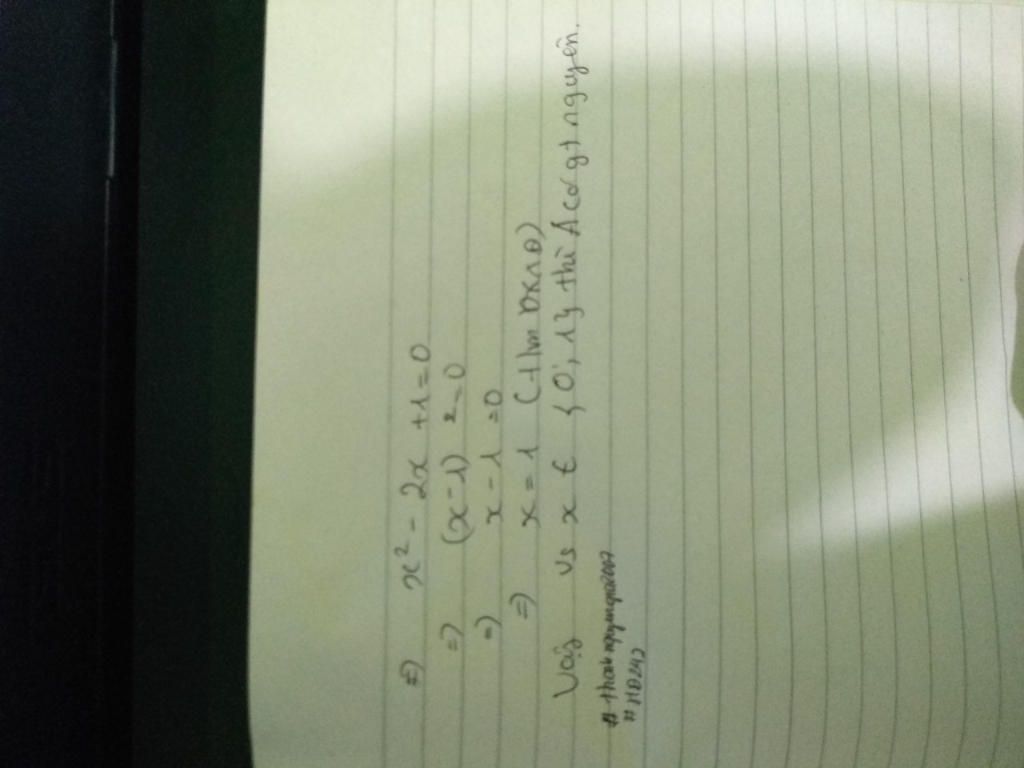 =) x² - 2x + 1 = 0
=) (x - 1)² = 0
=) x - 1 = 0
=) x = 1 (t/m ĐKXĐ)
Vậy vs x ∈ {0; 1} thì A có gt nguyên.
# thanhnguyengia2007
# HĐ247